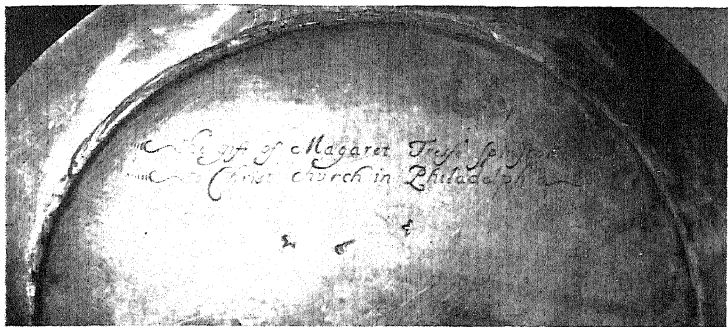 The gift of Magaret Tresse spinster
to Christ church in Philadelphia